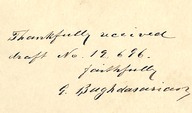 Thankfully received
draft No. 19686.
faithfully
G. Baghdasarian